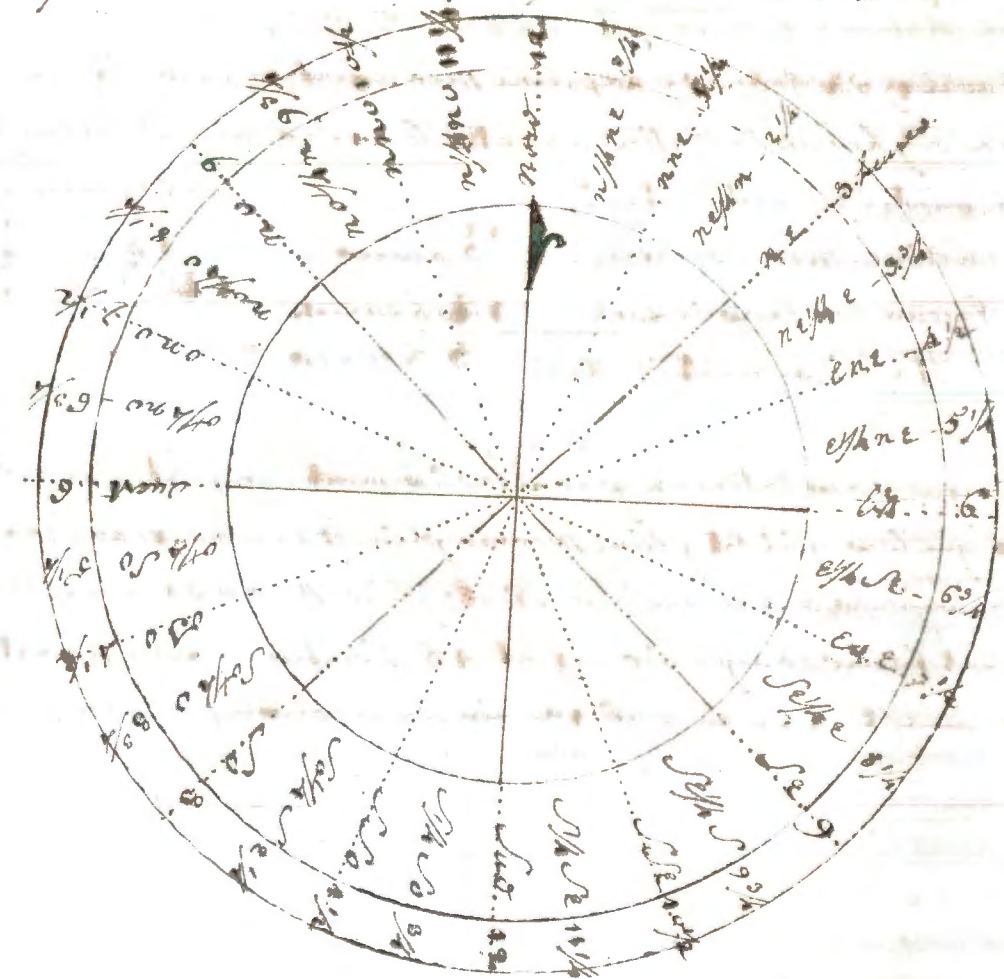 nord 12
n 1/4 ne 3/4
nne 1 1/2
ne 1/4 n 2 1/4
ne 3 heures
ne 1/4 e 3 3/4
ene 4 1/2
e 1/4 ne 5 1/4
est 6
e 1/4 se 6 3/4
ese 7 1/2
se 1/4 e 8 1/4
se 9
se 1/4 s 9 3/4
sse 10 1/2
s 1/4 se 11 1/4
sud 12
s 1/4 so 3/4
sso 1 1/2
so 1/4 s 2 1/4
so 3
so 1/4 o 3 3/4
oso 4 1/2
o 1/4 so 5 1/4
ouest 6
o 1/4 no 6 3/4
ono 7 1/2
no 1/4 o 8 1/4
no 9
no 1/4 n 9 3/4
nno 10 1/2
n 1/4 no 11 1/4